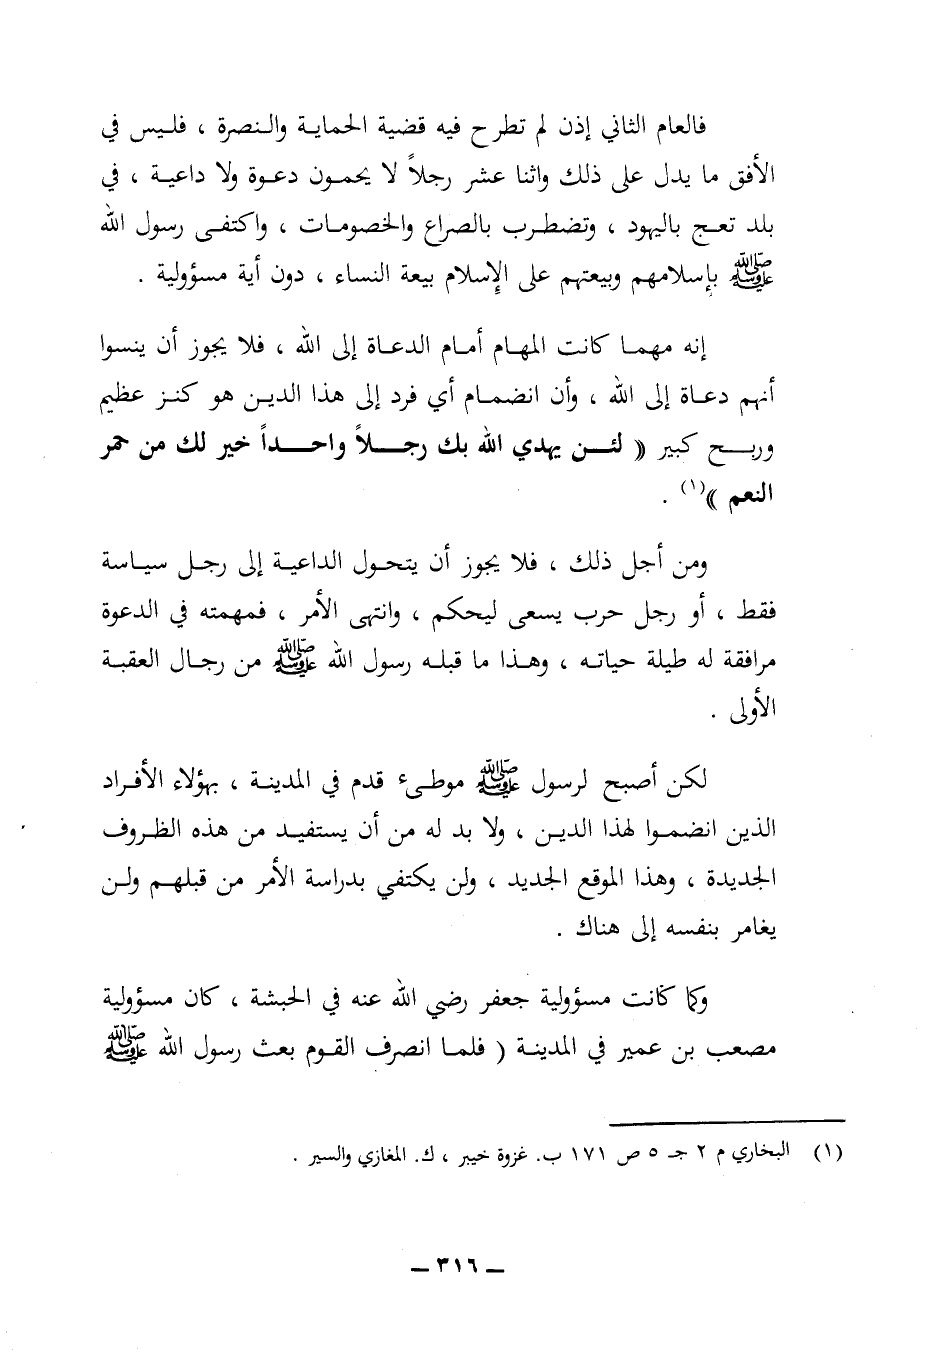 فالعام الثاني إذن لم تطرح فيه قضية الحماية والنصرة ، فليس في
الأفق ما يدل على ذلك واثنا عشر رجلاً لا يحمون دعوة ولا داعية ، في
بلد تعج باليهود ، وتضطرب بالصراع والخصومات ، واكتفى رسول الله
ﷺ بإسلامهم وبيعتهم على الإسلام بيعة النساء ، دون أية مسؤولية .
إنه مهما كانت المهام أمام الدعاة إلى الله ، فلا يجوز أن ينسوا
أنهم دعاة إلى الله ، وأن انضمام أي فرد إلى هذا الدين هو كنز عظيم
وربح كبير (( لئن يهدي الله بك رجلاً واحداً خير لك من حمر
النعم ))(١) .
ومن أجل ذلك ، فلا يجوز أن يتحول الداعية إلى رجل سياسة
فقط ، أو رجل حرب يسعى ليحكم ، وانتهى الأمر ، فمهمته في الدعوة
مرافقة له طيلة حياته ، وهذا ما قبله رسول الله ﷺ من رجال العقبة
الأولى .
لكن أصبح لرسول ﷺ موطىء قدم في المدينة ، بهؤلاء الأفراد
الذين انضموا لهذا الدين ، ولا بد له من أن يستفيد من هذه الظروف
الجديدة ، وهذا الموقع الجديد ، ولن يكتفي بدراسة الأمر من قبلهم ولن
يغامر بنفسه إلى هناك .
وكما كانت مسؤولية جعفر رضي الله عنه في الحبشة ، كان مسؤولية
مصعب بن عمير في المدينة ( فلما انصرف القوم بعث رسول الله ﷺ
(١) البخاري م ٢ جـ ٥ ص ١٧١ ب. غزوة خيبر ، ك. المغازي والسير .
ــ ٣١٦ ــ